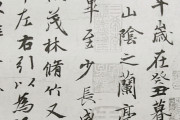 年歲在癸丑暮
山陰之蘭亭
畢至少長咸
茂林脩竹又
左右引以為